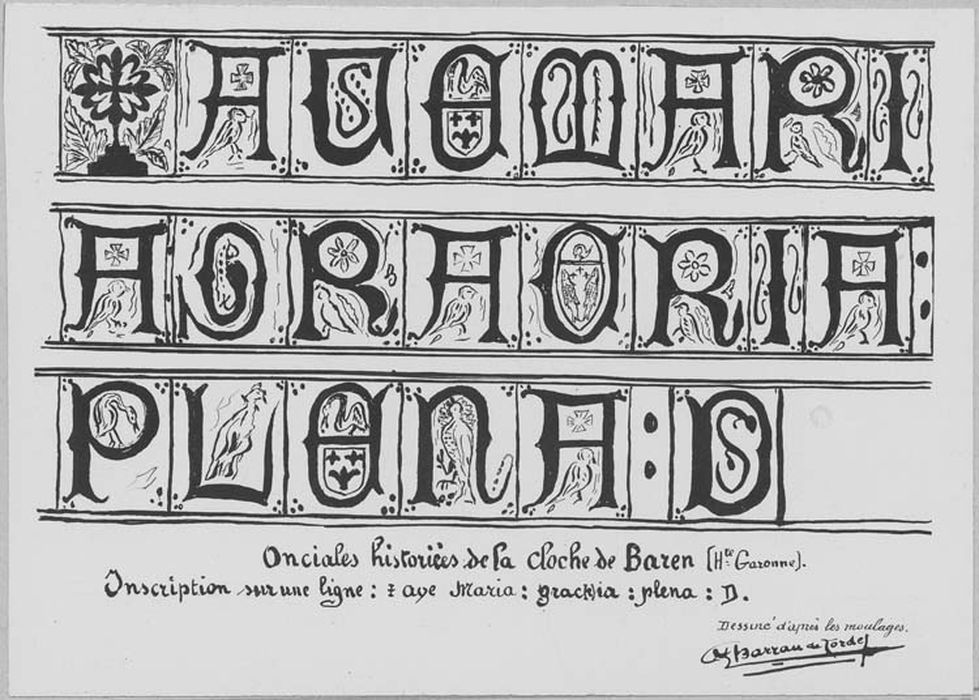 AUEMARI
A:GRACRIA:
PLENA:D
Onciales historiées de la cloche de Baren (Hte Garonne).
Inscription sur une ligne : ‡ aye Maria : : plena : D.
Dessiné d'après les moulages.
Barrau de